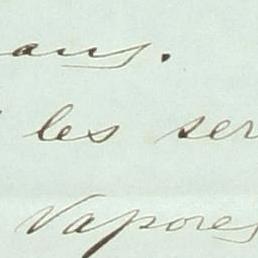 ans.
les ser
Vapores